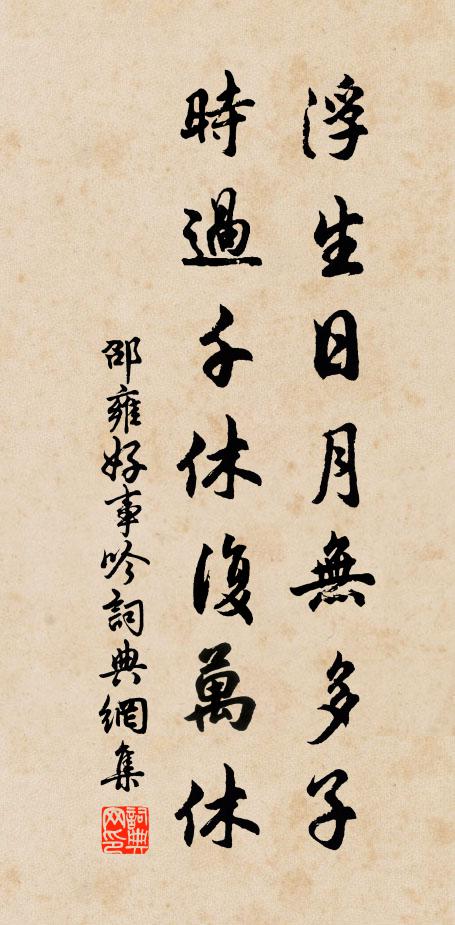 浮生日月無多子
時過千休復萬休
邵雍好事吟詞典網集
詞典
网印